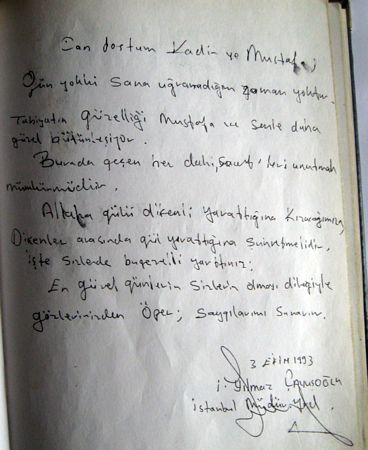 Can dostum Kadir ve Mustafa;
Gün yokki sana uğramadığım zaman yoktur.
Tabiyatın güzelliği Mustafa ve senle daha
güzel bütünleşiyor.
Burada geçen her daki, saat' leri unutmak
mümkünmüdür.
Allaha gülü dikenli yarattığına kızacağımıza,
Dikenler arasında gül yarattığına
işte sizlerde bu
En güzel günlerin sizlerin olması dileğiyle
gözlerinizden Öper; saygılarımı sunarım.
3 EKİM 1993
İ. Yılmaz ÇAVUŞOĞLU
İstanbul